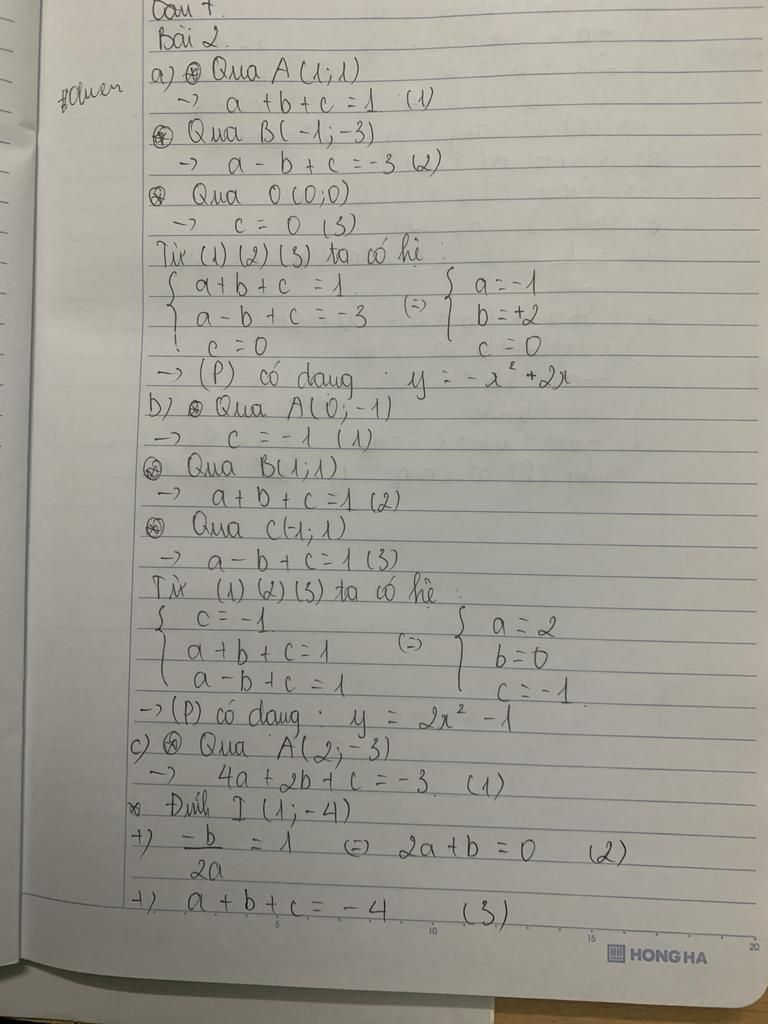 Câu 7.
Bài 2.
a) ⊛ Qua A(1;1)
→ a + b + c = 1 (1)
⊛ Qua B(-1;-3)
→ a - b + c = -3 (2)
⊛ Qua O(0;0)
→ c = 0 (3)
Từ (1) (2) (3) ta có hệ :
{ a + b + c = 1 (=) { a = -1
a - b + c = -3 b = +2
c = 0 c = 0
→ (P) có dạng : y = -x² + 2x
b) ⊛ Qua A(0;-1)
→ c = -1 (1)
⊛ Qua B(1;1)
→ a + b + c = 1 (2)
⊛ Qua C(-1;1)
→ a - b + c = 1 (3)
Từ (1) (2) (3) ta có hệ :
{ c = -1 (=) { a = 2
a + b + c = 1 b = 0
a - b + c = 1 c = -1
→ (P) có dạng : y = 2x² - 1
c) ⊛ Qua A(2;-3)
→ 4a + 2b + c = -3 (1)
* Đỉnh I (1;-4)
+) -b/2a = 1 (=) 2a + b = 0 (2)
+) a + b + c = -4 (3)
5 10 15 20
HONG HA